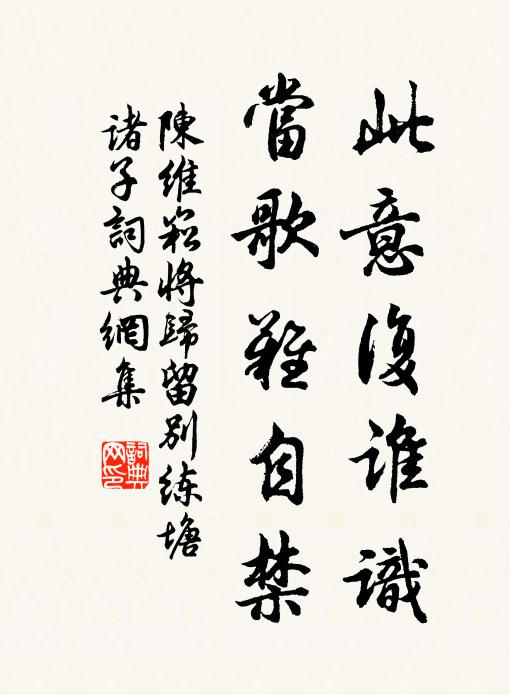 此意復誰識
當歌難自禁
陳維崧將歸留别练塘
诸子詞典網集
詞典网印